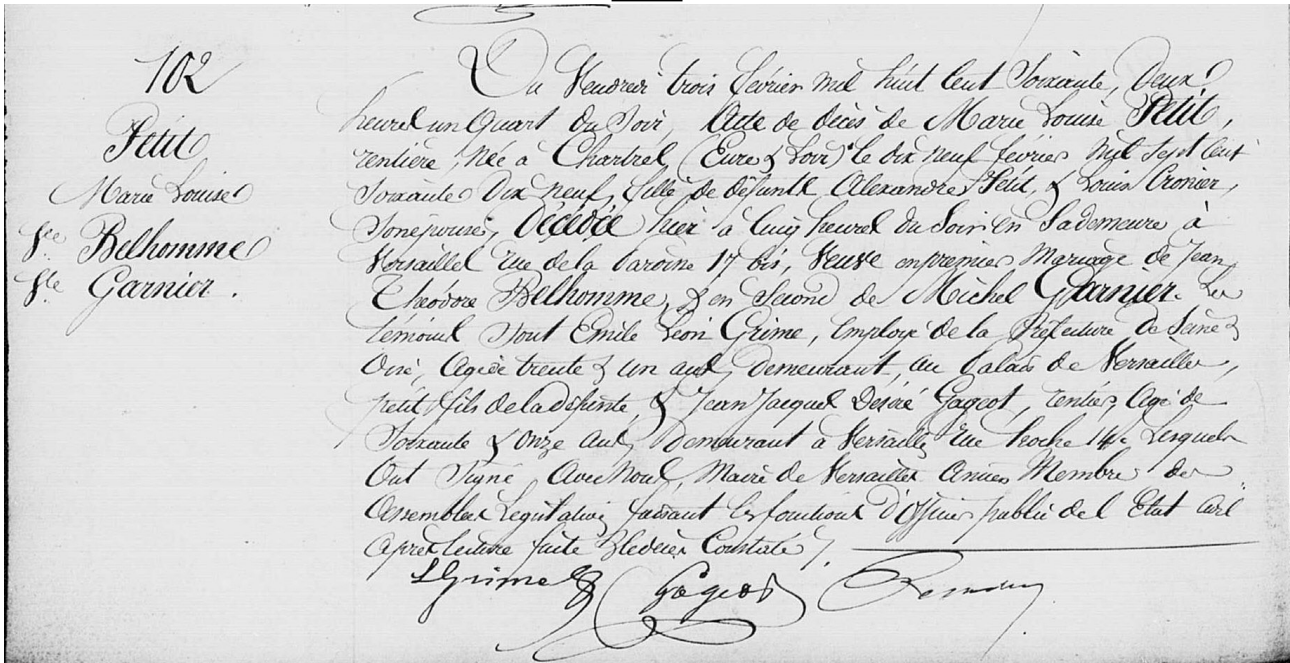 102
Petit
Marie Louise
Ve. Belhomme
Ve. Garnier.
Du Vendredi trois février mil huit cent soixante, Deux
heures un Quart du Soir, Acte de décès de Marie Louise Petit,
rentière, née à Chartres (Eure & Loir) le dix neuf février mil sept cent
soixante Dix neuf, fille de défunts Alexandre Petit, & Louise Cronier,
son épouse, Décédée hier à Cinq heures du Soir en Sa demeure à
Versailles rue de la Paroisse 17 bis, Veuve en premier Mariage de Jean
Théodore Belhomme, & en Second de Michel Garnier. Les
témoins Sont Emile Léon Grime, Employé de la Préfecture de Seine &
Oise, Agé de trente & un ans, Demeurant, au Palais de Versailles,
petit fils de la défunte, & Jean Jacques Désiré Gageot, rentier, Agé de
Soixante & Onze ans, Demeurant à Versailles rue hoche 14. Lesquels
Ont Signé, Avec Nous, Maire de Versailles Ancien Membre des
Assemblées Législatives faisant les fonctions d'Officier public de l'Etat civil
Après lecture faite & le décès Constaté
LGrime Gageot